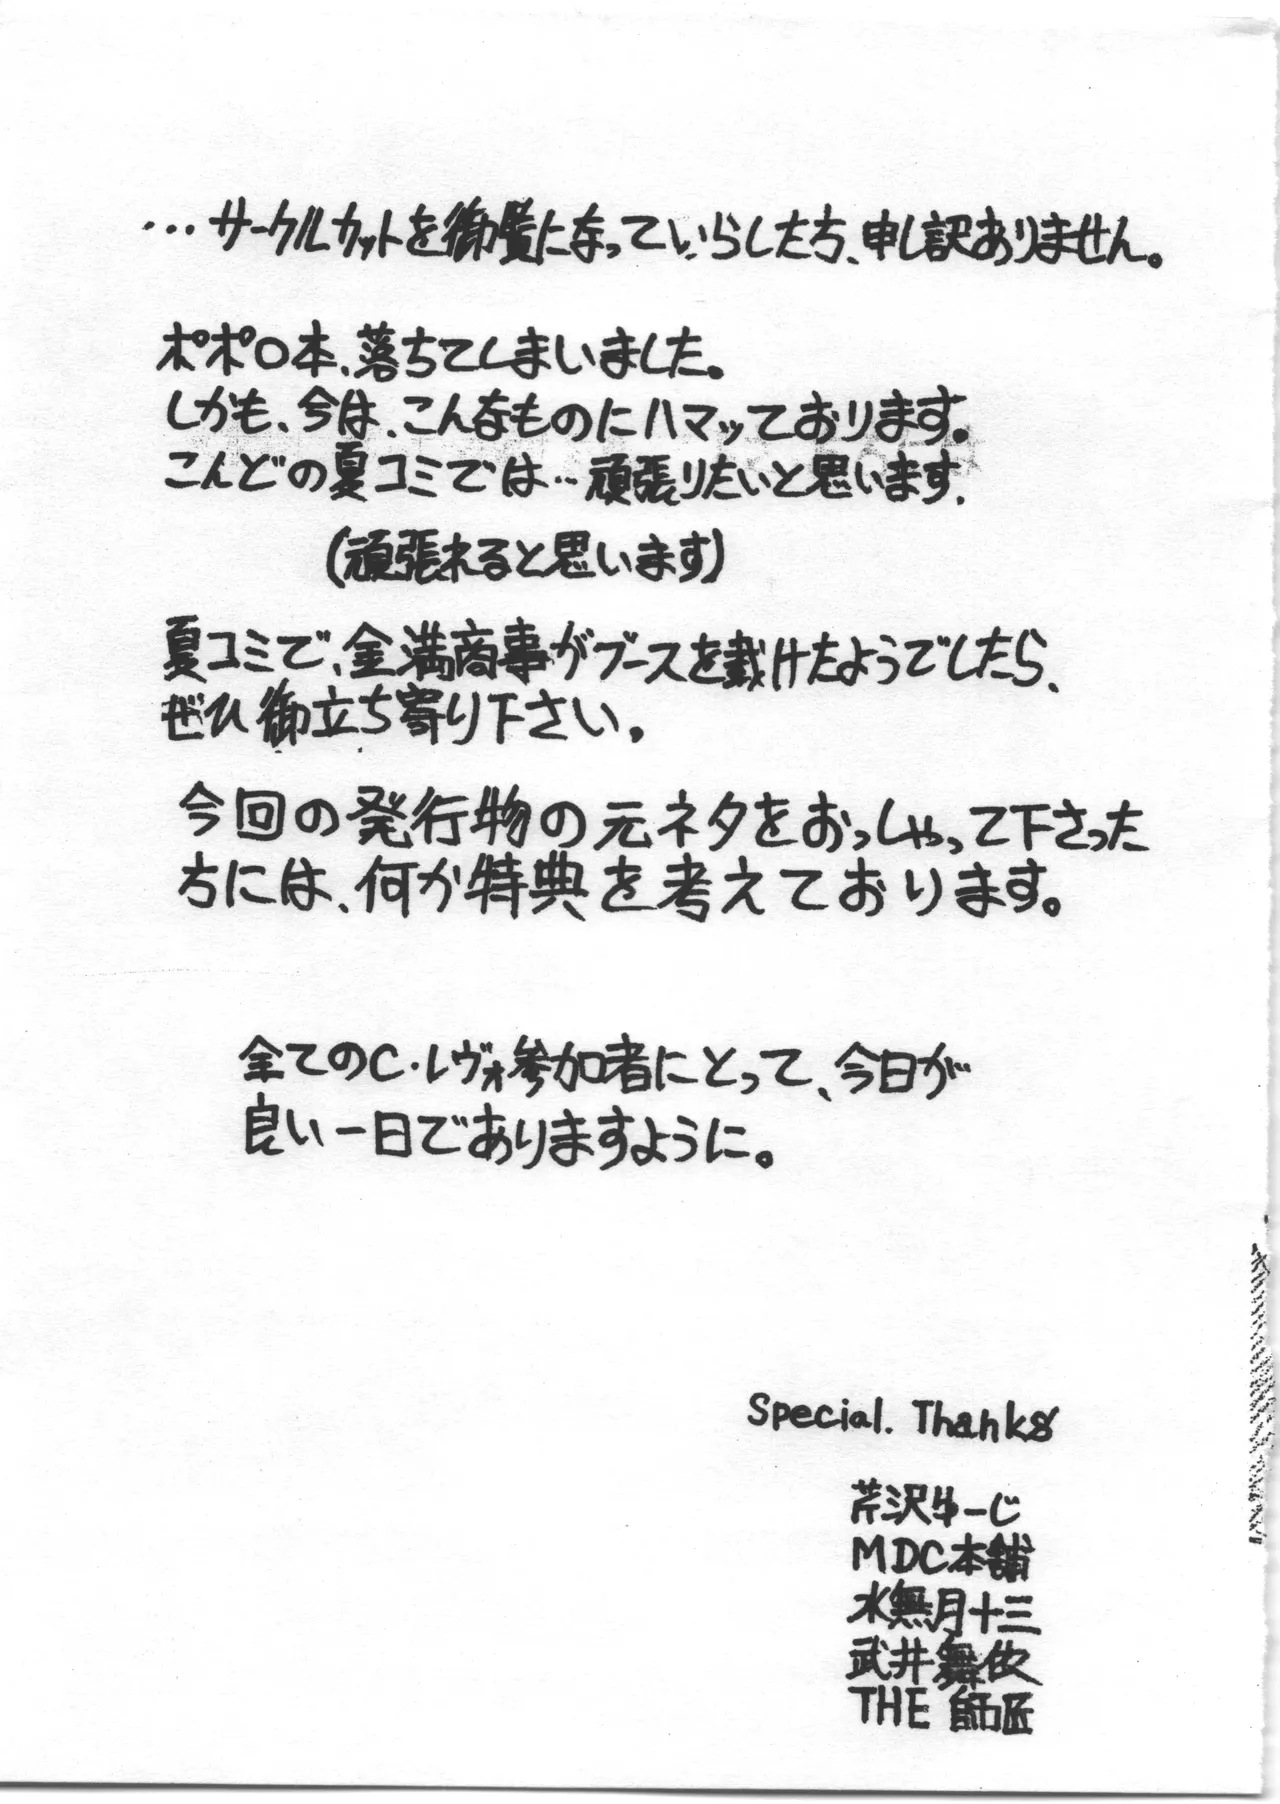 …サークルカットを御覧になっていらした方、申し訳ありません。
ポポロ本、落ちてしまいました。
しかも、今は、こんなものにハマッております。
こんどの夏コミでは…頑張りたいと思います。
(頑張れると思います)
夏コミで、金満商事がブースを戴けたようでしたら、
ぜひ御立ち寄り下さい。
今回の発行物の元ネタをおっしゃって下さった
方には、何か特典を考えております。
全てのC・レヴォ参加者にとって、今日が
良い一日でありますように。
Special. Thanks
芹沢ゆーじ
MDC本舗
水無月十三
武井舞依
THE 師匠